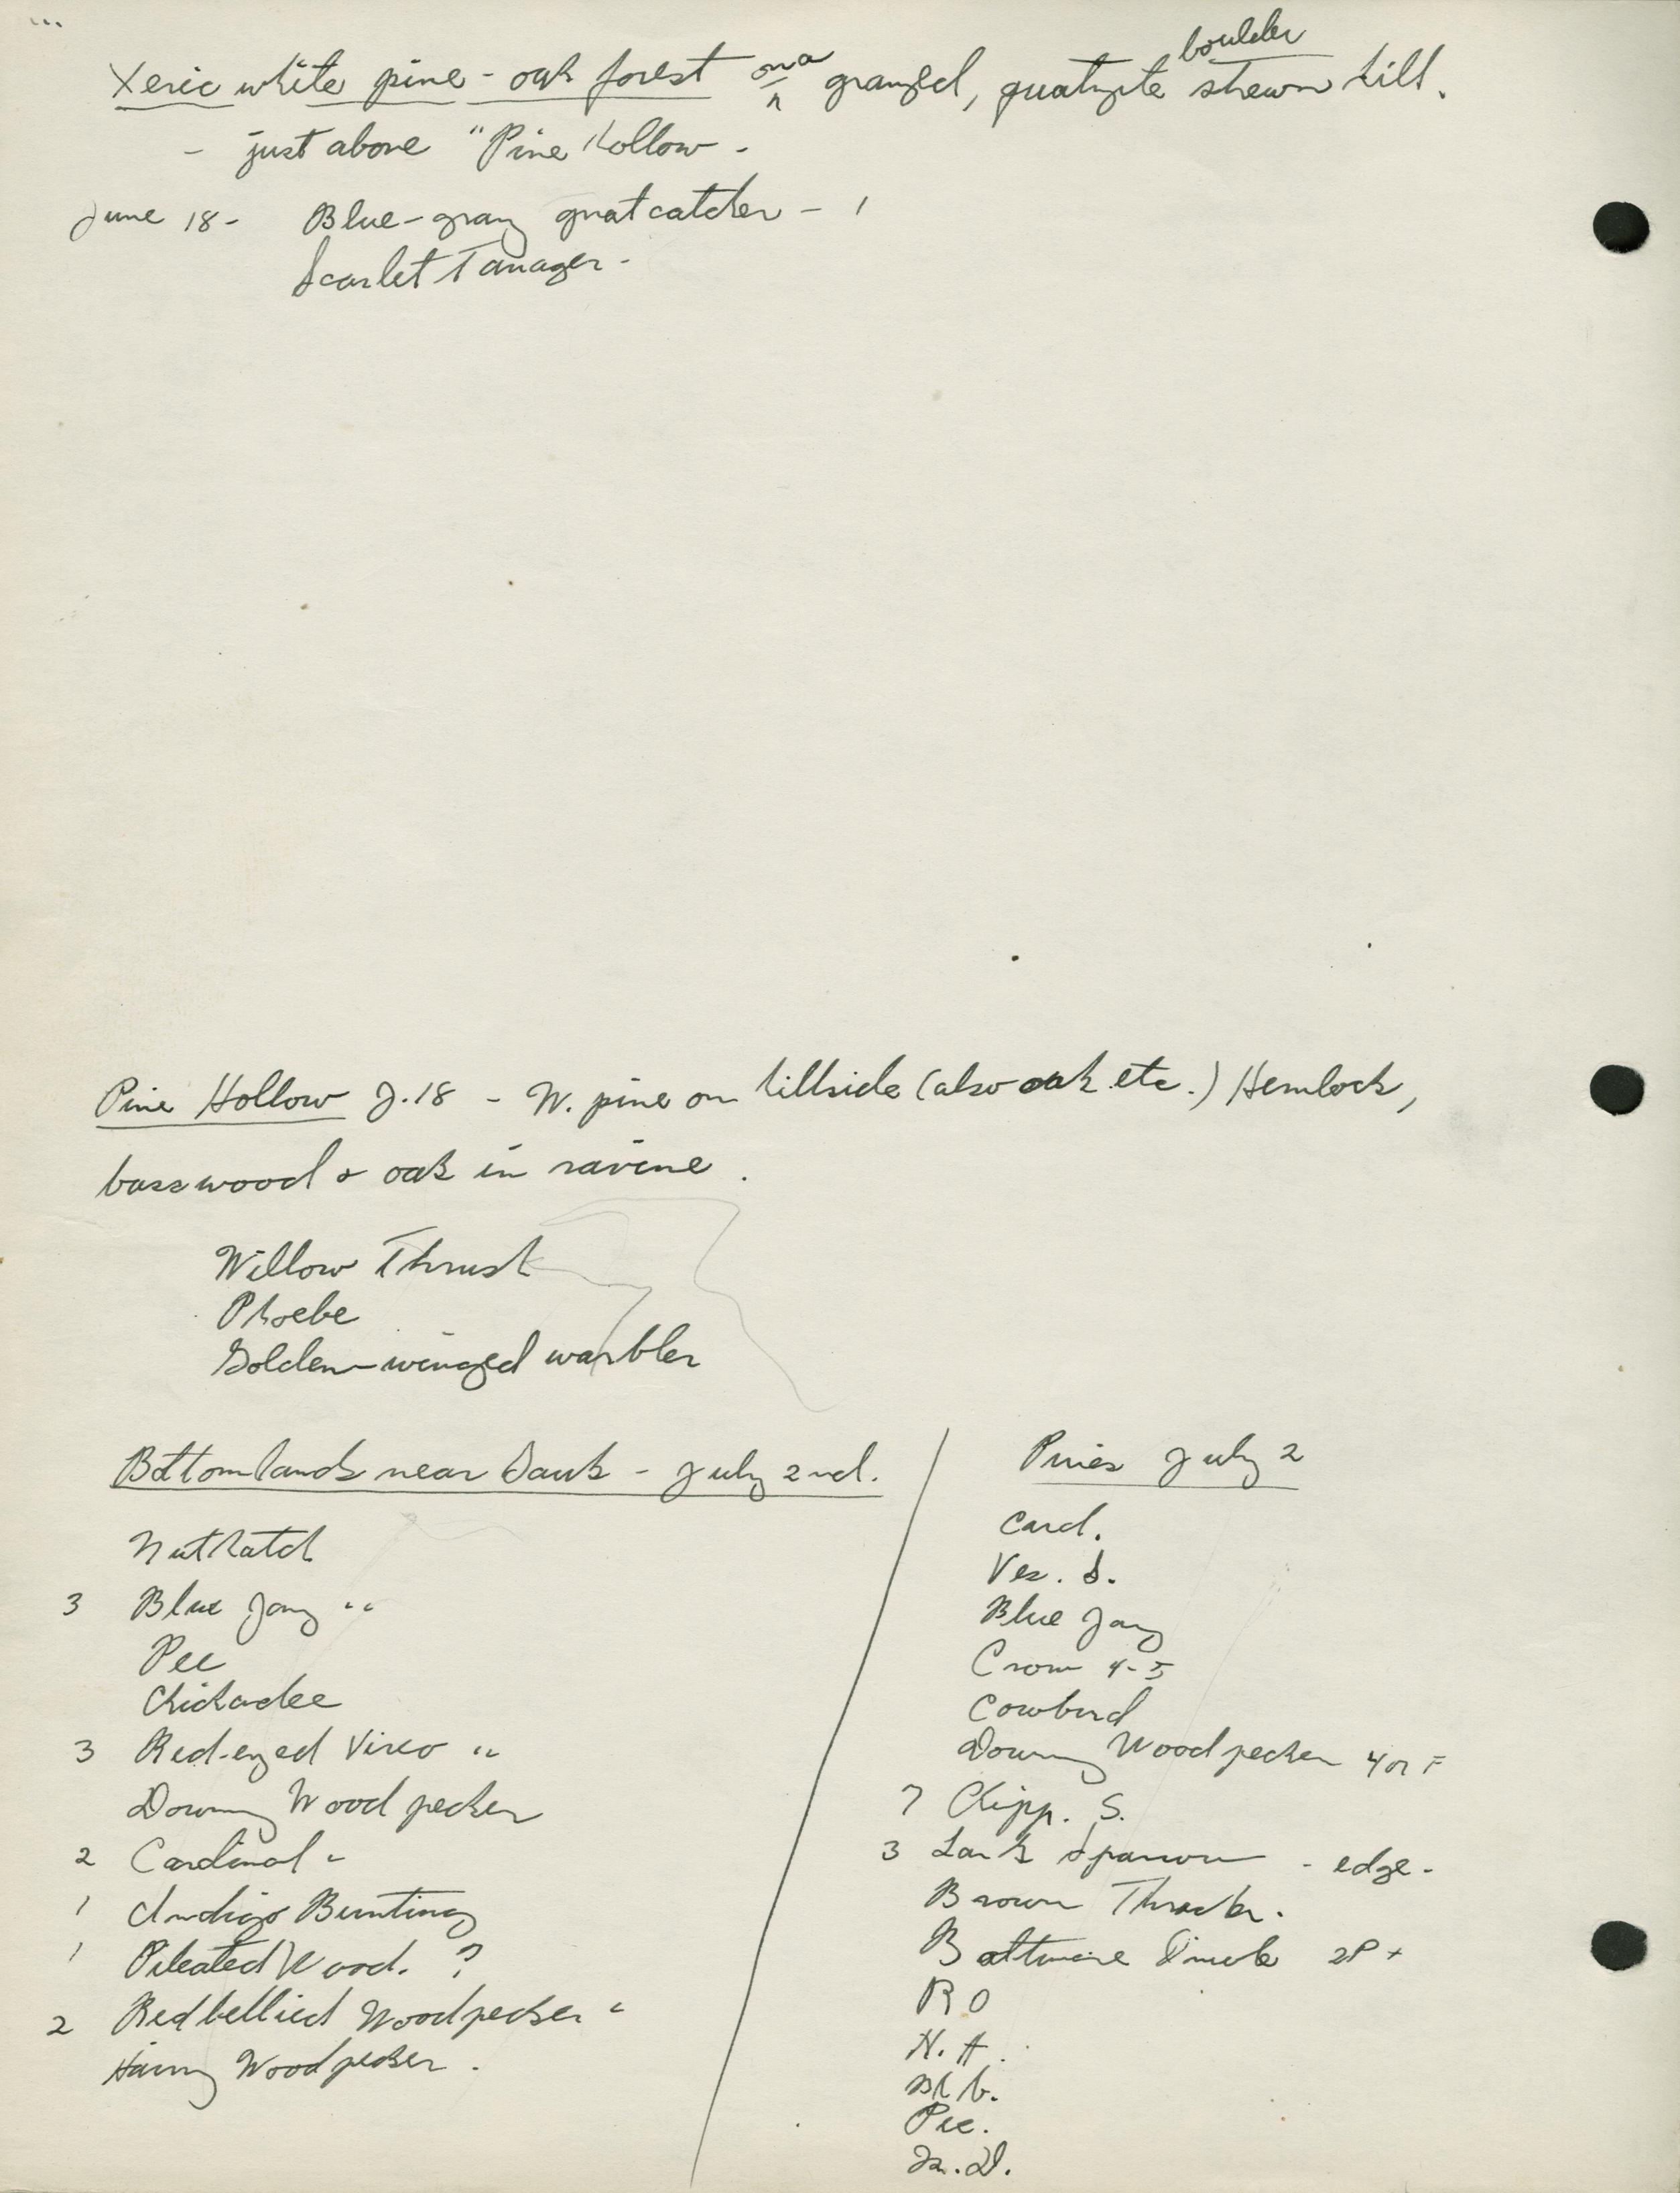 Xeric white pine - oak forest on a grazed, quartzite boulder strewn hill.
- just above "Pine Hollow -
June 18 - Blue-gray gnatcatcher - 1
Scarlet Tanager -
Pine Hollow J. 18 - W. pine on hillside (also oak etc.) Hemlock,
basswood & oak in ravine.
Willow Thrush
Phoebe
Golden-winged warbler
Bottomlands near Sauk - July 2nd.
Nuthatch
3 Blue Jay "
Pee
Chickadee
3 Red-eyed Vireo "
Downy Woodpecker
2 Cardinal
1 Indigo Bunting
1 Pileated Wood. ?
2 Redbellied Woodpecker
Hairy Woodpecker.
Pines July 2
Card.
Ves. S.
Blue Jay
Crow 4-5
Cowbird
Downy Woodpecker 4 or
7 Chipp. S.
3 Lark Sparrow - edge -
Brown Thrasher.
Baltimore Oriole
R O
Pee.